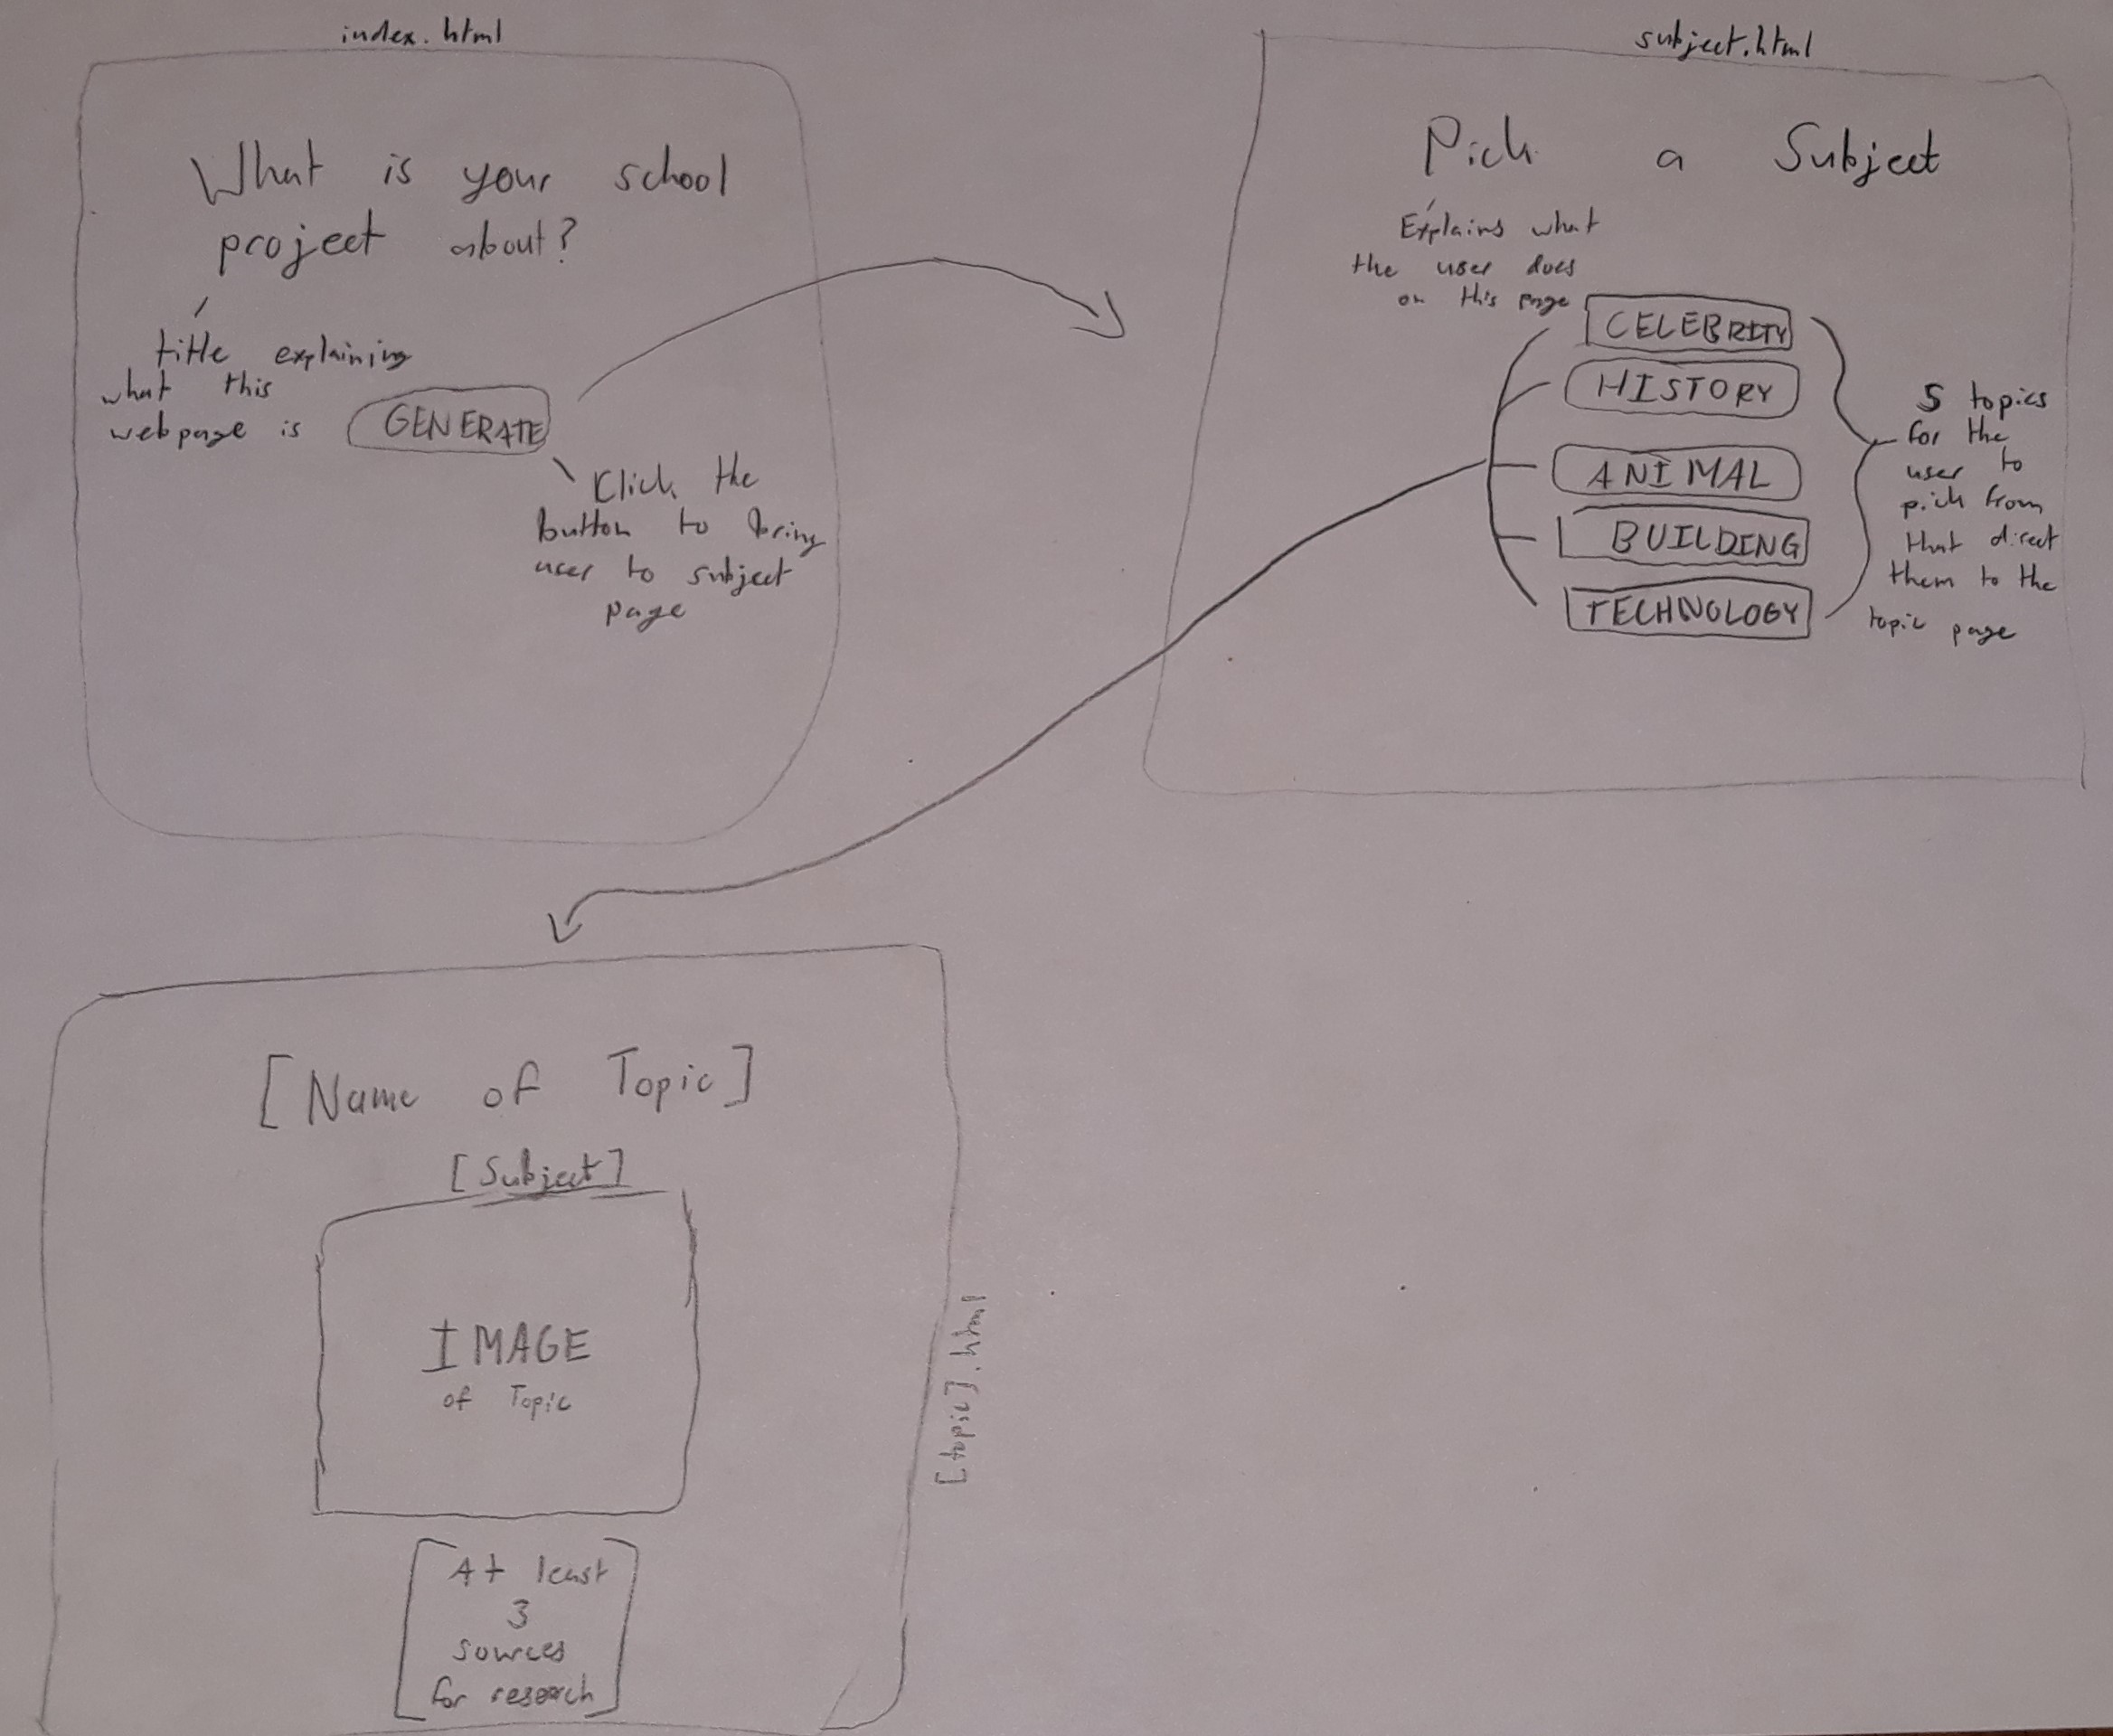 index.html
What is your school
project about?
title explaining
what this
webpage is
GENERATE
Click the
button to bring
user to subject
page
subject.html
Pick a Subject
Explains what
the user does
on this page
CELEBRITY
HISTORY
ANIMAL
BUILDING
TECHNOLOGY
5 topics
for the
user to
pick from
that direct
them to the
topic page
[Name of Topic]
[Subject]
IMAGE
of Topic
[At least
3
sources
for research]
[topic].html